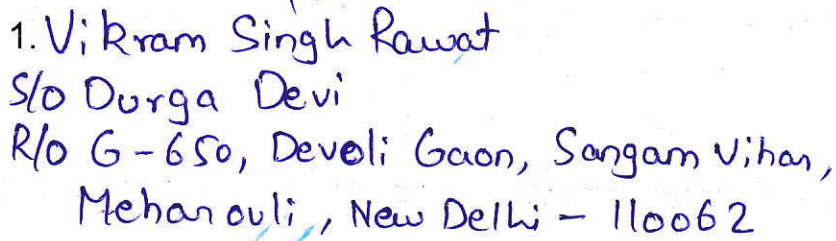 1. Vikram Singh Rawat
S/o Durga Devi
R/o G-650, Devoli Gaon, Sangam Vihar,
Meharouli, New Delhi - 110062